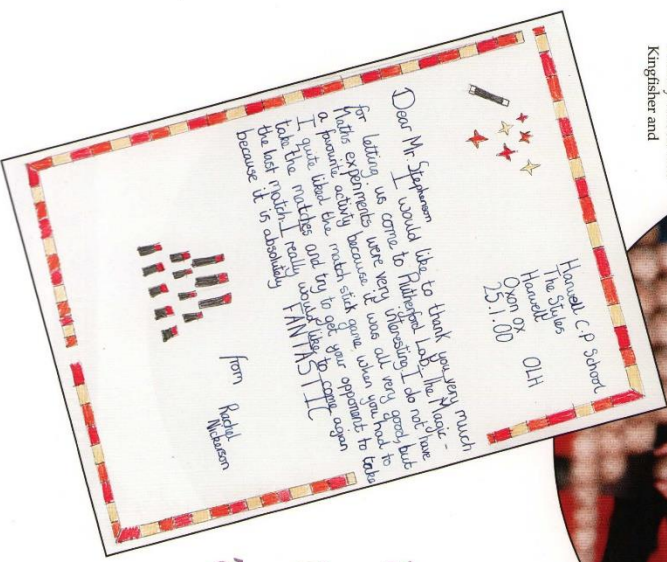 Kingfisher and
Harwell C.P School
The Styles
Harwell
Oxon OX OLH
25.1.00
Dear Mr. Stephenson
I would like to thank you very much
for letting us come to Rutherford Lab. The Magic -
Maths experiments were very interesting I do not have
a favourite activity because it was all very good, but
I quite liked the match stick game, when you had to
take the matches and try to get your opponent to take
the last match. I really would like to come again
because it is absolutely FANTASTIC
from Rachel
Nickerson